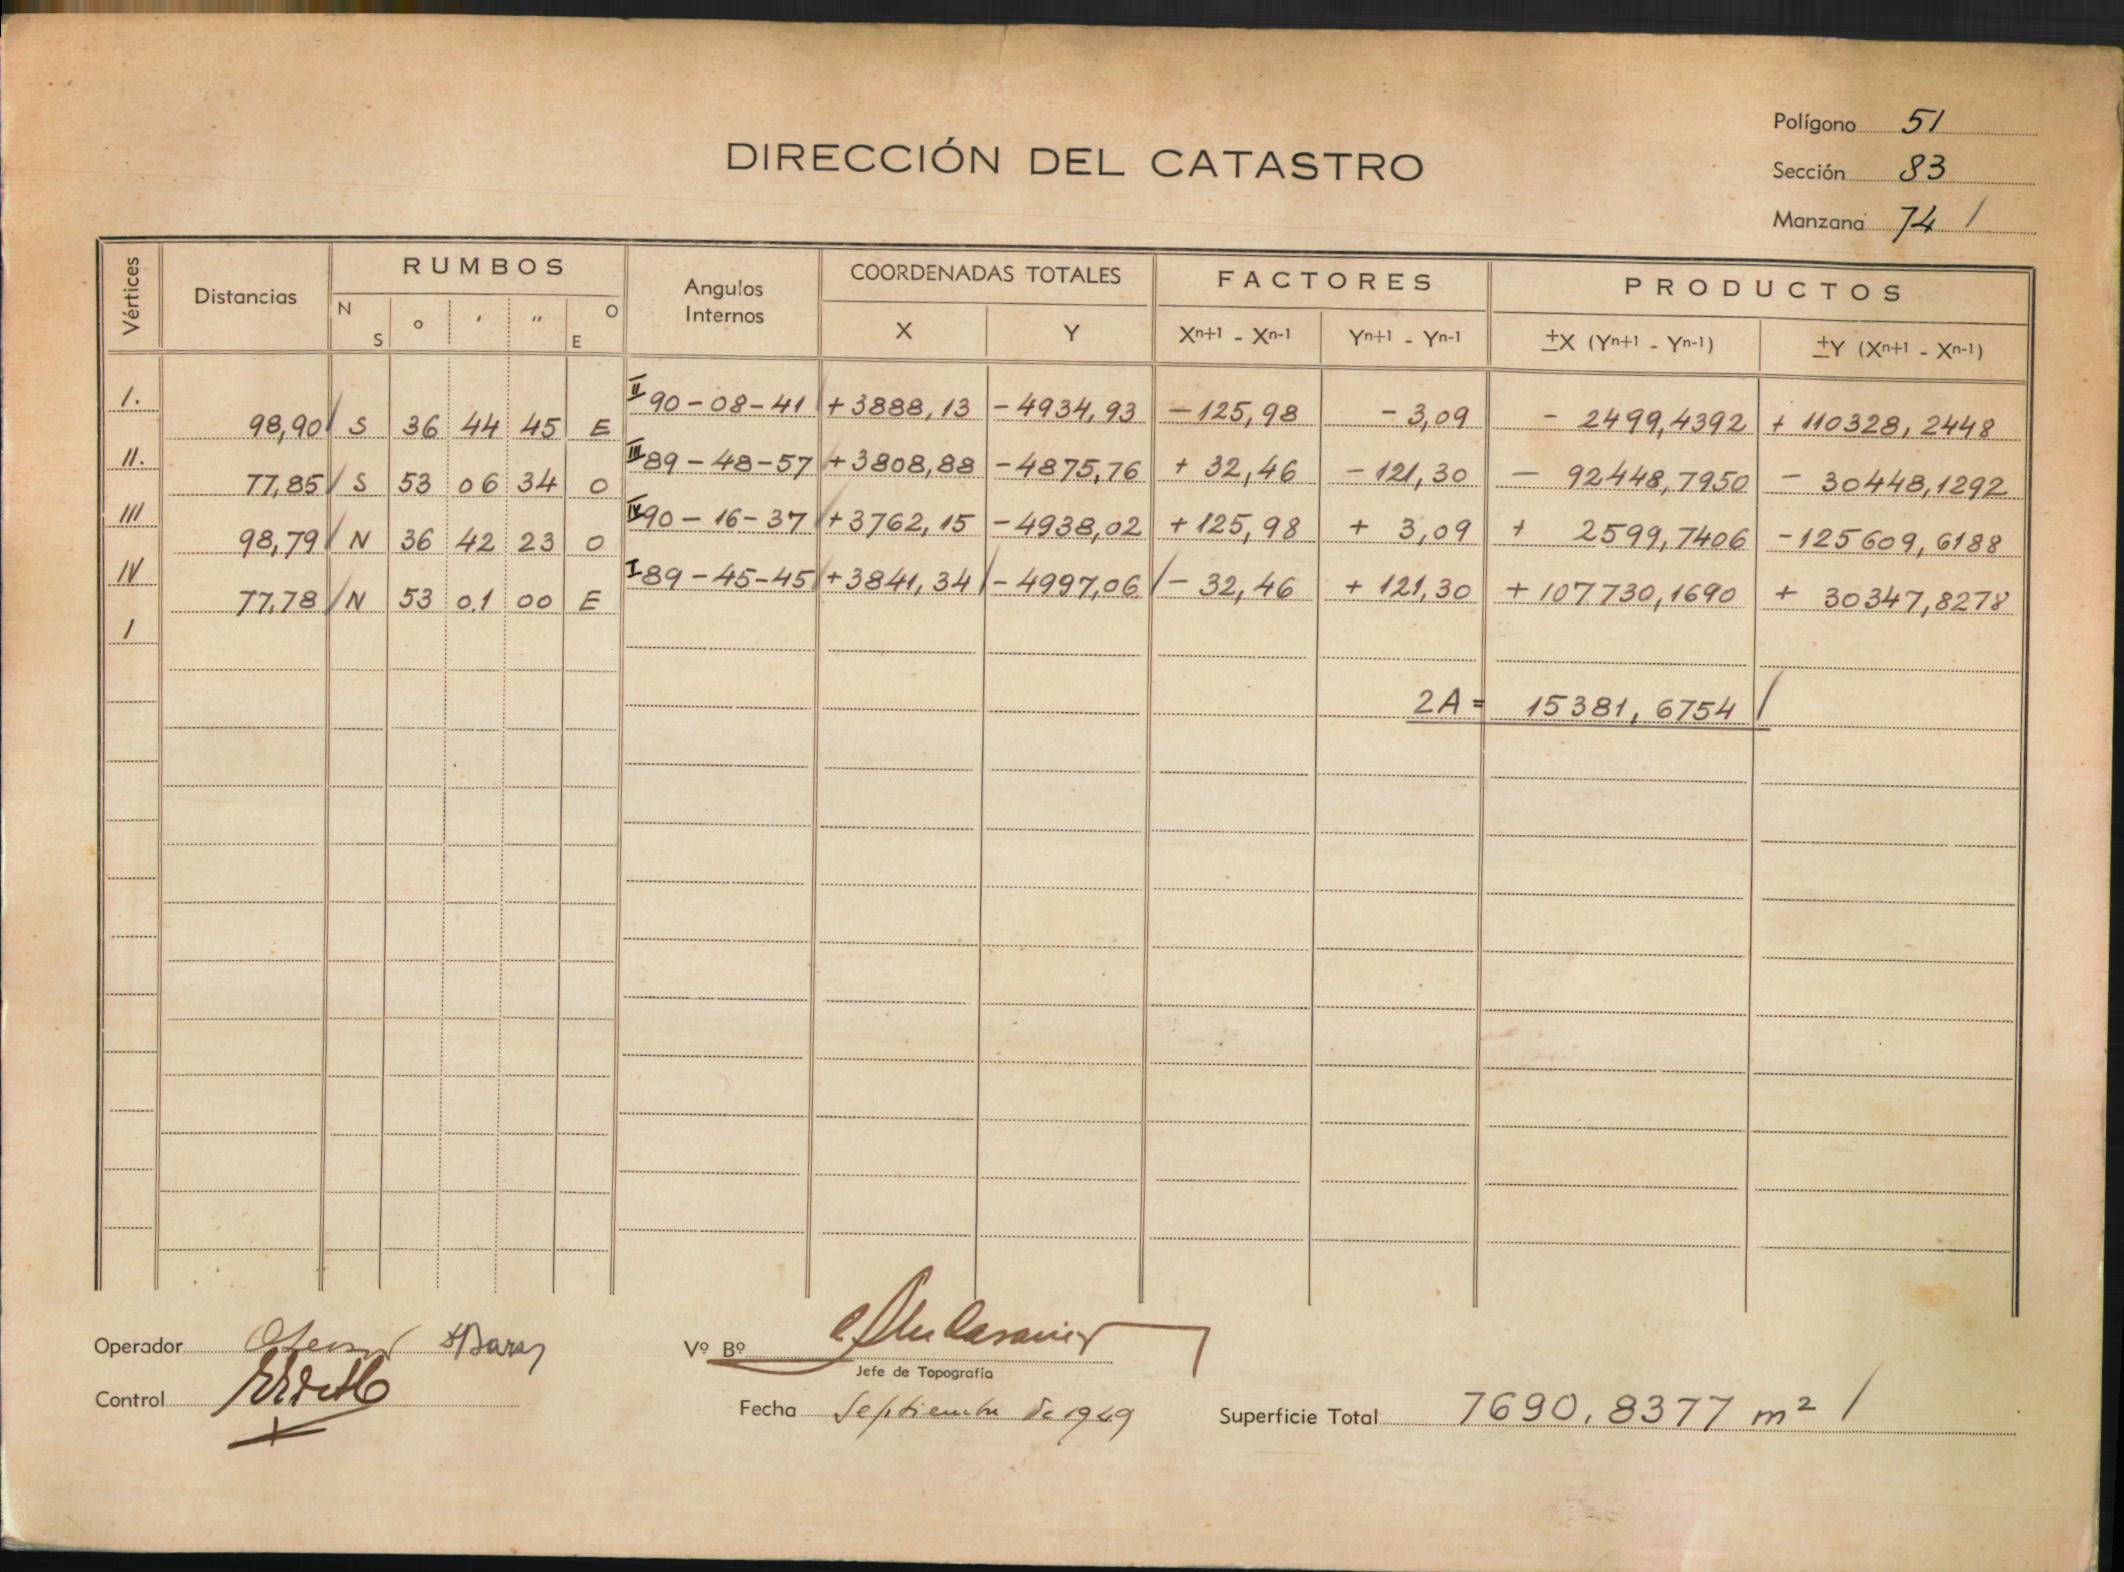 Polígono 51
DIRECCIÓN DEL CATASTRO
Sección 83
Manzana 74 /
Vértices Distancias RUMBOS Angulos Internos COORDENADAS TOTALES FACTORES PRODUCTOS
N S o ' " O E X Y Xn+1 - Xn-1 Yn+1 - Yn-1 ±X (Yn+1 - Yn-1) ±Y (Xn+1 - Xn-1)
I. 98,90/ S 36 44 45 E II 90-08-41 +3888,13 -4934,93 -125,98 -3,09 - 2499,4392 + 110328,2448
II. 77,85/ S 53 06 34 O III 89-48-57 +3808,88 -4875,76 + 32,46 -121,30 - 92448,7950 - 30448,1292
III 98,79/ N 36 42 23 O IV 90-16-37 +3762,15 -4938,02 +125,98 + 3,09 + 2599,7406 -125609,6188
IV 77,78/ N 53 01 00 E I 89-45-45 +3841,34 /-4997,06 / - 32,46 + 121,30 + 107730,1690 + 30347,8278
I
2A = 15381,6754 /
Operador
Vº Bº
Jefe de Topografía
Control
Fecha Septiembre de 1949
Superficie Total 7690,8377 m² /